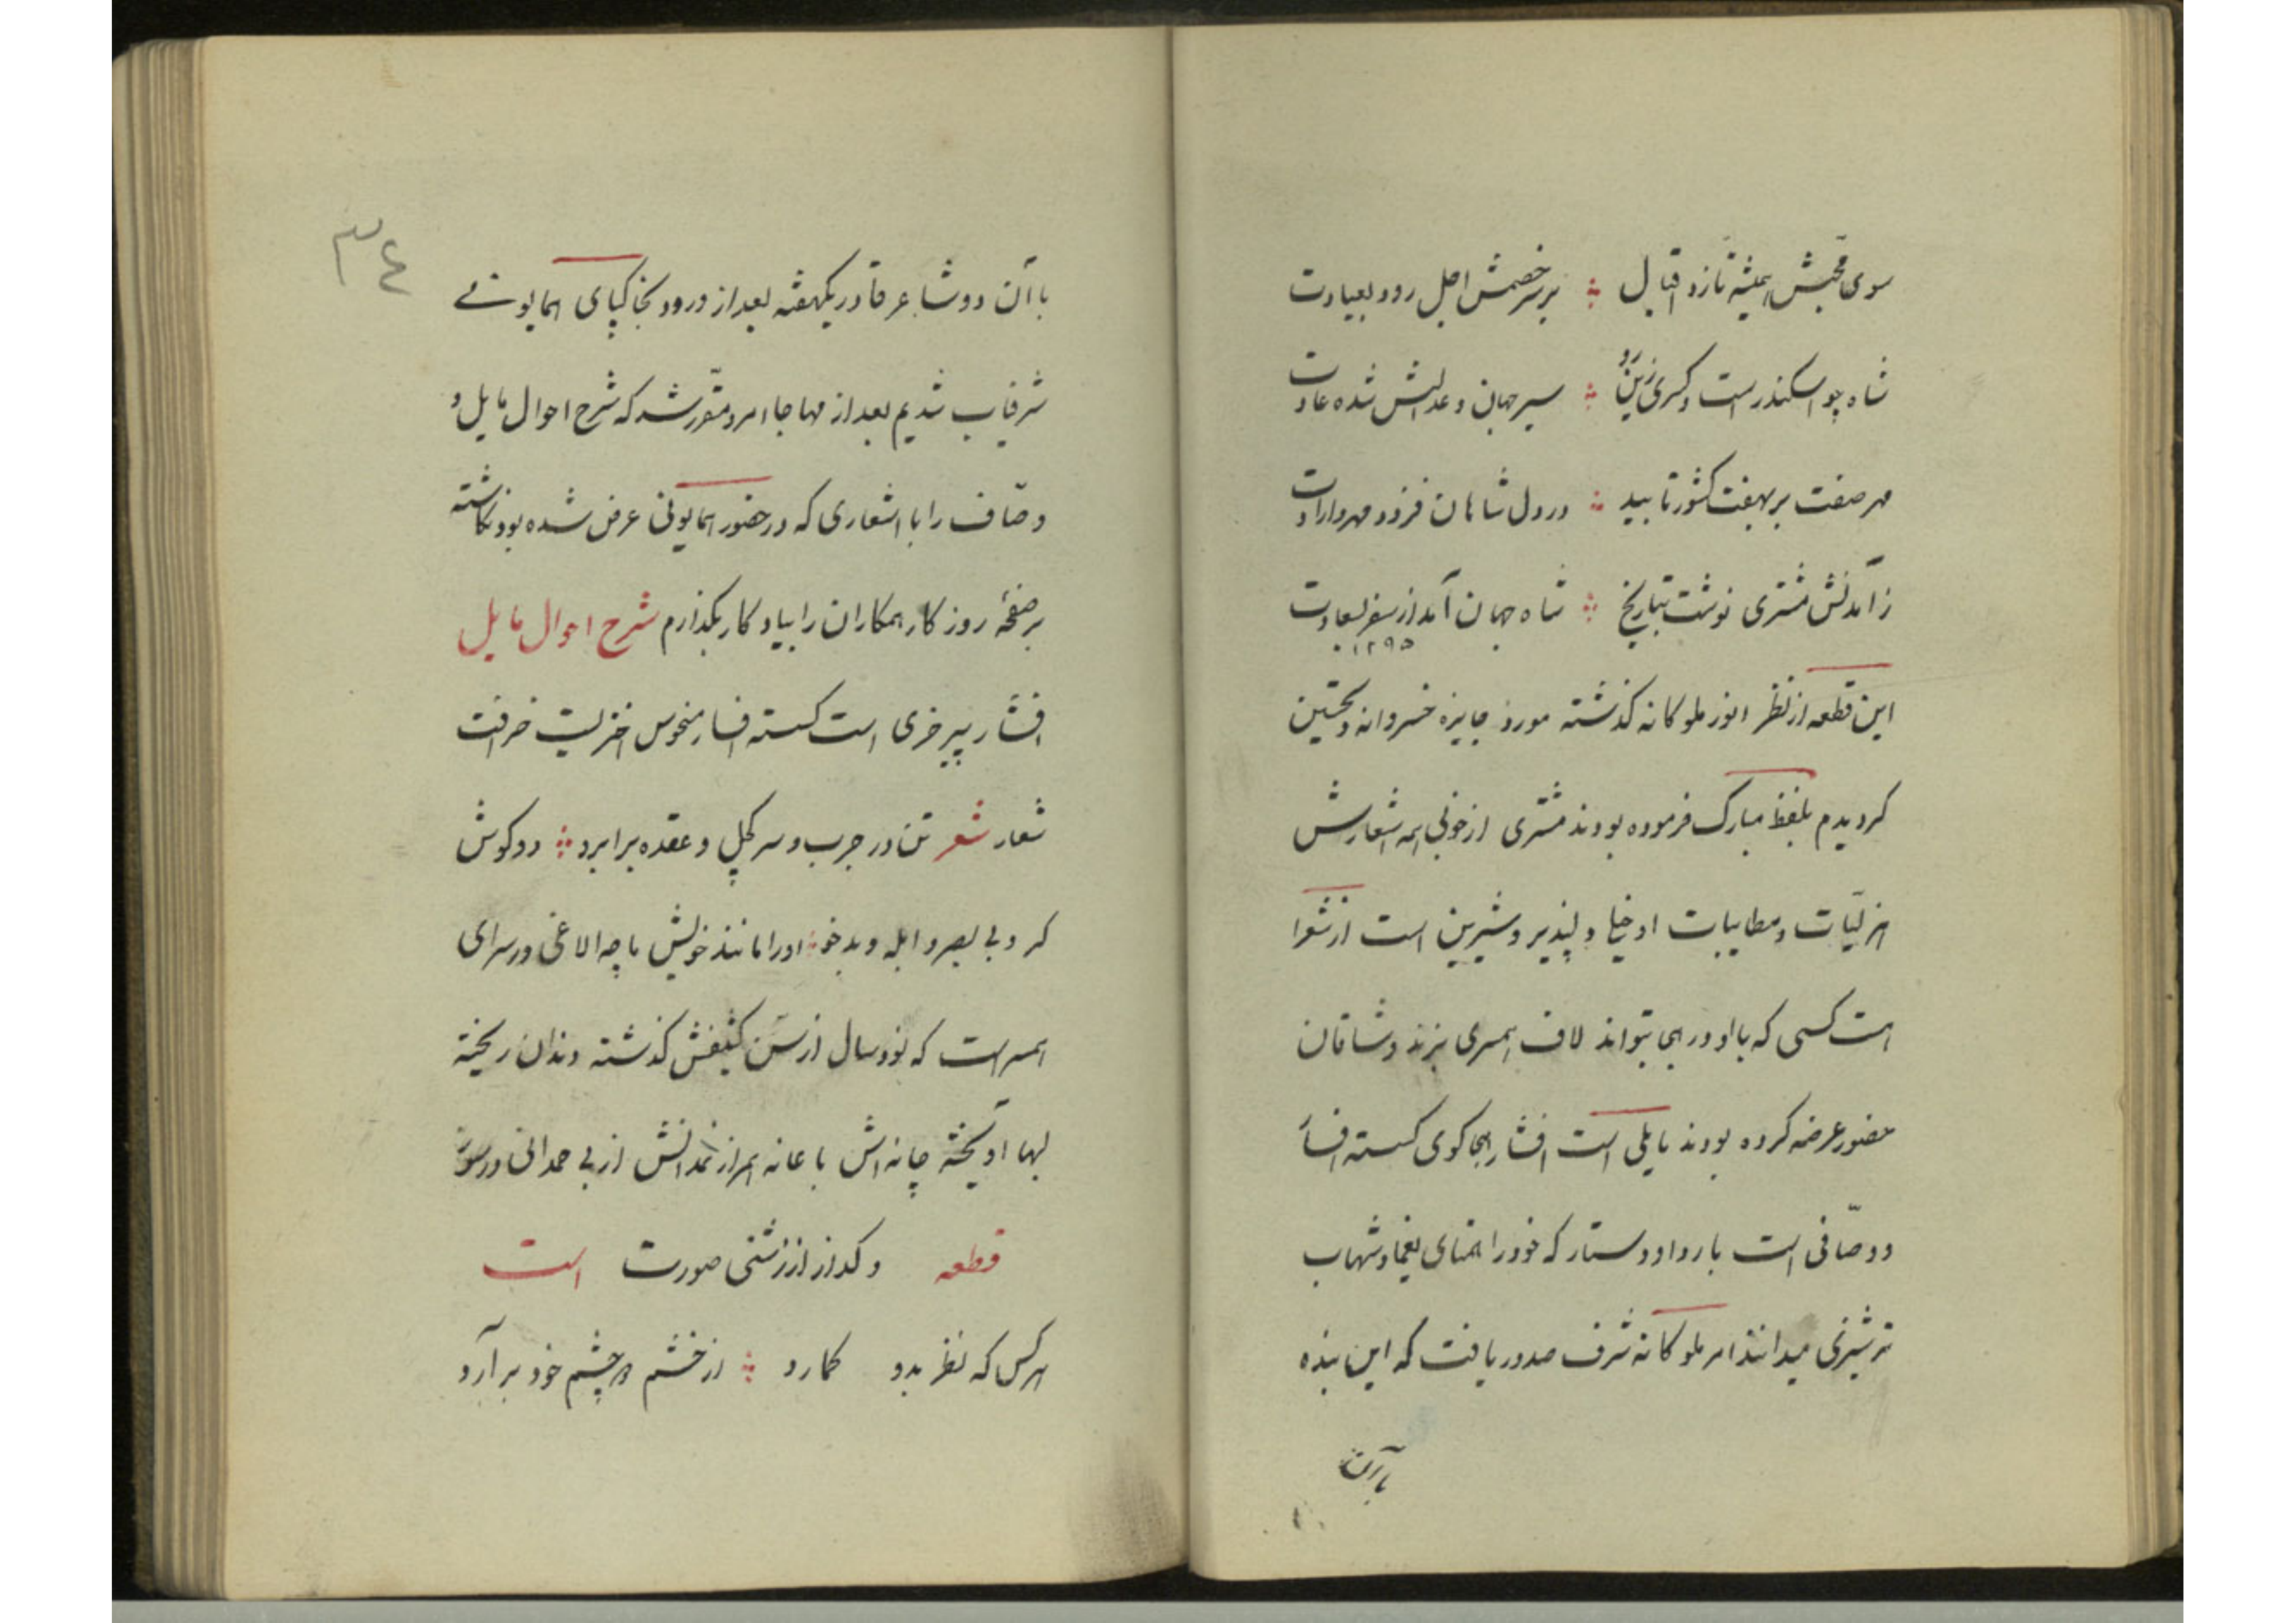 سوی محبش همیشه تازد اقبال ؞ بر سر خصمش اجل رود بعیادت
شاه چو اسکندر است و کسری زین رو ؞ سیر جهان و عدالتش شده عادت
مهر صفت بر بهفت کشور تابید ؞ در دل شاهان فزود مهر و ارادت
ز آمدنش مشتری نوشت بتاریخ ؞ شاه جهان آمد از سفر بسعادت
۱۲۹۵
این قطعه از نظر انور ملوکانه گذشته مورد جایزه خسروانه و تحسین
کردیدم بلفظ مبارک فرموده بودند مشتری از خوبی همه اشعارش
هزلیّات و مطایبات او خیلی دلپذیر و شیرین است از شعرا
است کسی که با او در هجا بتواند لاف همسری بزند و شاقان
حضور عرضه کرده بودند مایلی است افشار هجا کوی کسسته افسار
و وصّافی است با ردا و دستار که خود را همتای یغما و شهاب
ترشیزی میدانند امر ملوکانه شرف صدور یافت که این بنده
با آن
۳٤
با آن دو شاعر قادر یکهفته بعد از ورود بخاکپای همایونی
شرفیاب شدیم بعد از مهاجا امر و مقرّر شد که شرح احوال مایل و
وصّاف را با اشعاری که در حضور همایونی عرض شده بود نکاشته
بر صفحهٔ روزکار همکاران را بیادکار بکذارم شرح احوال مایل
افشار پیر خری است کسسته افسار منحوس اختریست خرافت
شعار شعر تن در جرب و سر کچل و عقده برابرد ؞ دو کوش
کر و بی بصر و ابله و بدخو ؞ او را مانند خویش ماچه الاغی در سرای
همسر است که نود سال از سنّ کثیفش کذشته دندان ریخته
لبها آویخته چانه‌اش با عانه همراز نمدانش از بی حمدانی در سوز
و کداز از زشتی صورت است قطعه
هر کس که نظر بدو کمارد ؞ از خشم دو چشم خود بر آرد